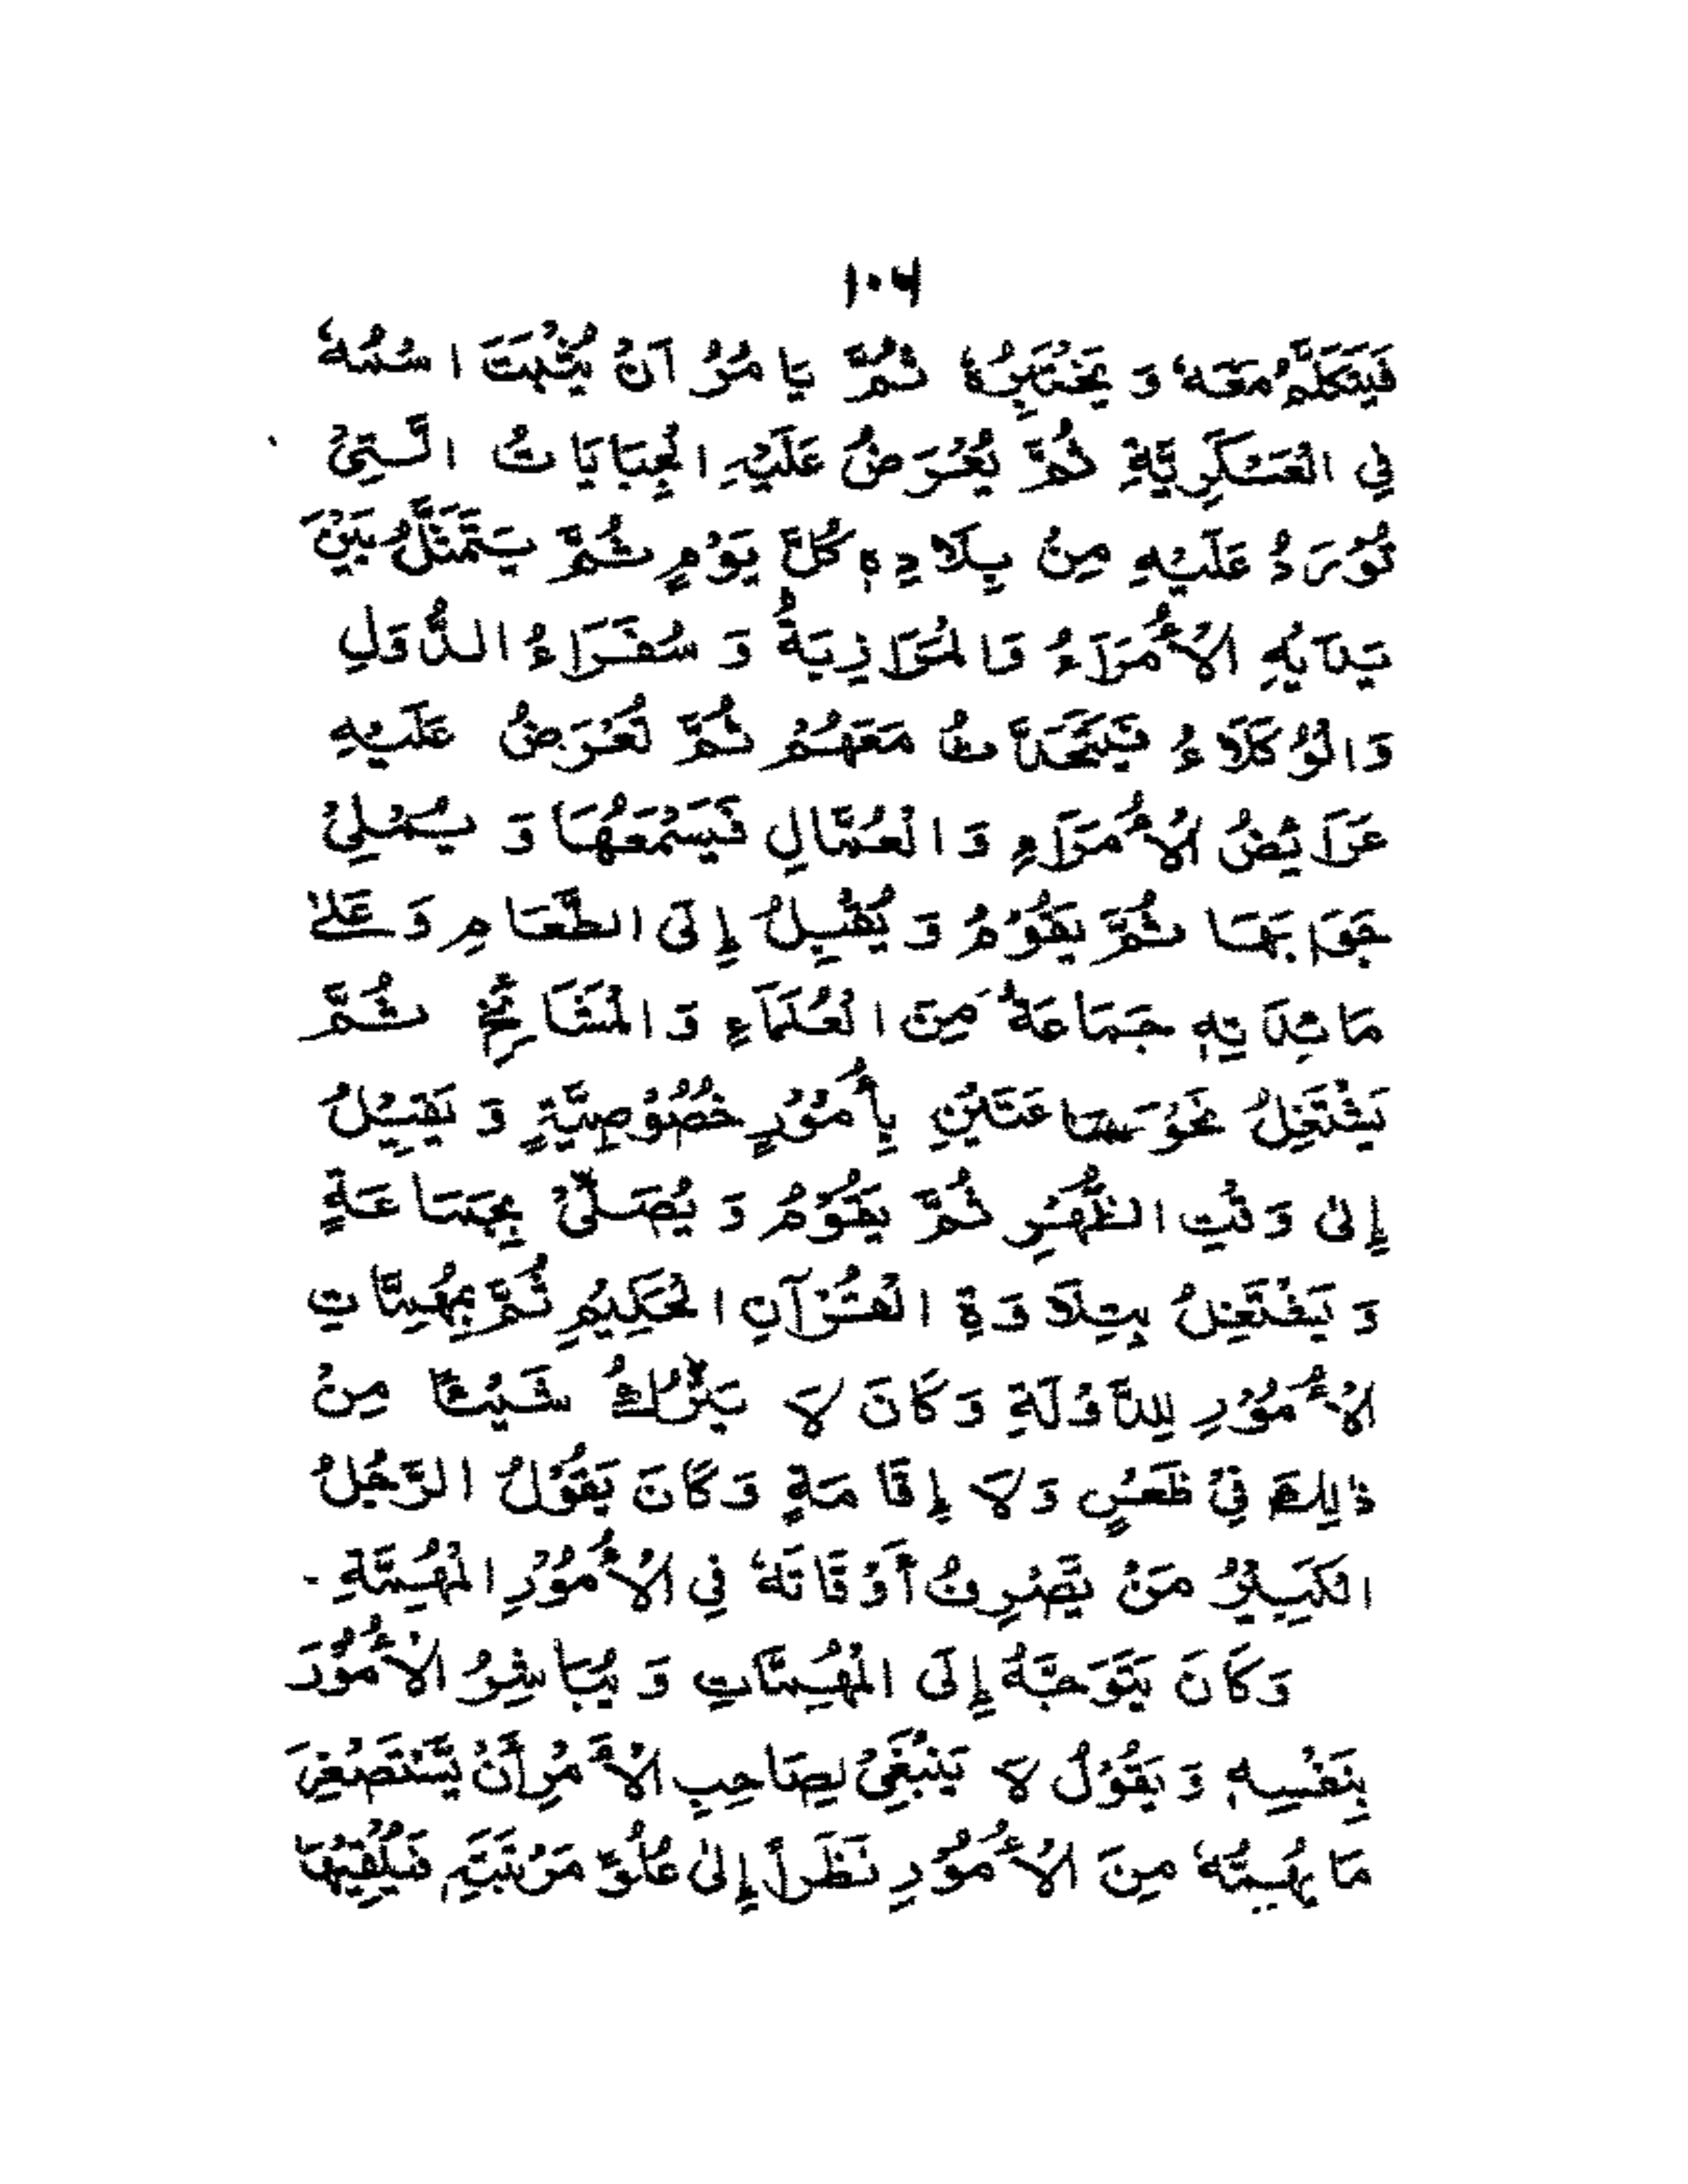 ١٠٦
فَيَتَكَلَّمُ مَعَهٗ وَ يَخْتَبِرُهٗ ثُمَّ يَامُرُ اَنْ يُثْبَتَ اسْمُهٗ
فِي الْعَسْكَرِيَّةِ ثُمَّ يُعْرَضُ عَلَيْهِ الْجِبَايَاتُ الَّتِيْ
تُوْرَدُ عَلَيْهِ مِنْ بِلَادِهٖ كُلَّ يَوْمٍ ثُمَّ يَتَمَثَّلُ بَيْنَ
يَدَيْهِ الْأُمَرَاءُ وَالْمَرَازِبَةُ وَ سُفَرَاءُ الدُّوَلِ
وَالْوُكَلَاءُ فَيَتَحَدَّثُ مَعَهُمْ ثُمَّ تُعْرَضُ عَلَيْهِ
عَرَايِضُ الْأُمَرَاءِ وَ الْعُمَّالِ فَيَسْمَعُهَا وَ يُمْلِيْ
جَوَابَهَا ثُمَّ يَقُوْمُ وَ يُقْبِلُ إِلَى الطَّعَامِ وَ عَلٰى
مَائِدَتِهٖ جَمَاعَةٌ مِنَ الْعُلَمَاءِ وَ الْمَشَائِخِ ثُمَّ
يَشْتَغِلُ نَحْوَ سَاعَتَيْنِ بِأُمُوْرٍ خُصُوْصِيَّةٍ وَ يَقِيْلُ
إِلٰى وَقْتِ الظُّهْرِ ثُمَّ يَقُوْمُ وَ يُصَلِّيْ بِجَمَاعَةٍ
وَ يَشْتَغِلُ بِتِلَاوَةِ الْقُرْآنِ الْحَكِيْمِ ثُمَّ بِمُهِمَّاتِ
الْأُمُوْرِ لِلدَّوْلَةِ وَ كَانَ لَا يَتْرُكُ شَيْئًا مِنْ
ذٰلِكَ فِيْ ظَعْنٍ وَلَا إِقَامَةٍ وَ كَانَ يَقُوْلُ الرَّجُلُ
الْكَبِيْرُ مَنْ يَّصْرِفُ أَوْقَاتَهٗ فِي الْأُمُوْرِ الْمُهِمَّةِ۔
وَ كَانَ يَتَوَجَّهُ إِلَى الْمُهِمَّاتِ وَ يُبَاشِرُ الْأُمُوْرَ
بِنَفْسِهٖ وَ يَقُوْلُ لَا يَنْبَغِيْ لِصَاحِبِ الْأَمْرِ أَنْ يَّسْتَصْغِرَ
مَا يُهِمُّهٗ مِنَ الْأُمُوْرِ نَظَرًا إِلٰى عُلُوِّ مَرْتَبَتِهٖ فَيُلْقِيْهَا